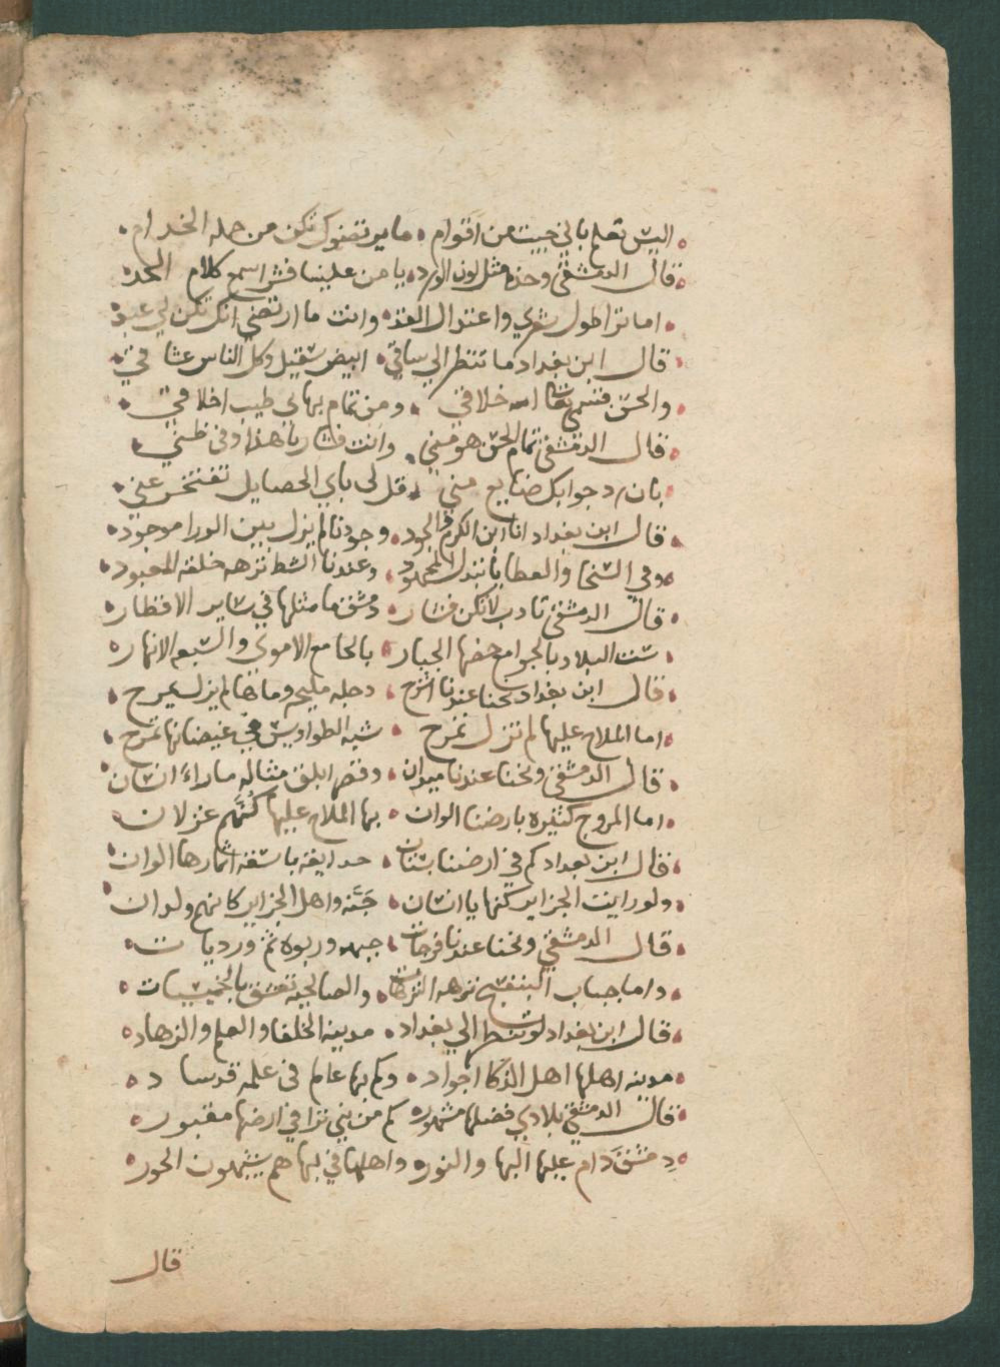 اليس تعلم باني جيت من اقوام • ما يرتضوك تكن من جمله الخدام •
قال الدمشقي وخده مثل لون الورد • يا من علينا فشر اسمع كلام الجد
اما ترا طول شعري واعتدال القد • وانت ما ارتضي انك تكن لي عبد
قال ابن بغداد ما تنظر الي ساقي • ابيض سقيل وكل الناس عشاقي •
والحسن قسمي الله خلاقي • ومن تمام بهائي طيب اخلاقي •
قال الدمشقي تمام الحسن هو مني • وانت فشار يا هذا وفي ظني •
بان رد جوابك ضايع مني • قل لي باي الخصايل تفتخر عني •
قال ابن بغداد انا ابن الكرم والجود • وجودنا لم يزل بين الورا موجود •
وفي السخا والعطا يا نبدل المجهود • وعندنا الشط نزهه خلقة المعبود •
قال الدمشقي تادب لا تكن فشار • دمشق ما مثلها في ساير الاقطار •
ست البلاد بالجوامع خصها الجبار • بالجامع الاموي والسبع الانهار •
قال ابن بغداد نحنا عندنا اشرح • دجله مليحه وماؤها لم يزل يمرح •
اما الملاح عليها لم تزل تمرح • شبه الطواويس في غيضاتها تمرح •
قال الدمشقي ونحنا عندنا ميدان • وقصر ابلق مثاله ما راءا انسان
اما المروج كثيره بارضنا الوان • بها الملاح عليها كنهم غزلان
قال ابن بغداد كم في ارضنا بستان • حدايقه باسقه اثمارها الوان
ولو رايت الجزاير كنها يا انسان • جنه واهل الجزاير كانهم ولدان
قال الدمشقي ونحنا عندنا فرجات • جبهه وربوه ثم ورديات •
واما جناب البنفسج نزهه النزهات • والصالحيه تعشق بالخميسات •
قال ابن بغداد لو تنظر الي بغداد • مدينه الخلفا والعلم والزهاد •
مدينه اهلها اهل الذكا اجواد • وكم بها عالم في علمه قد ساد •
قال الدمشقي بلادي فضلها مشهور • كم من نبي ترا في ارضها مقبور •
دمشق دام عليها البها والنور • واهلها في بها هم يشبهون الحور •
قال